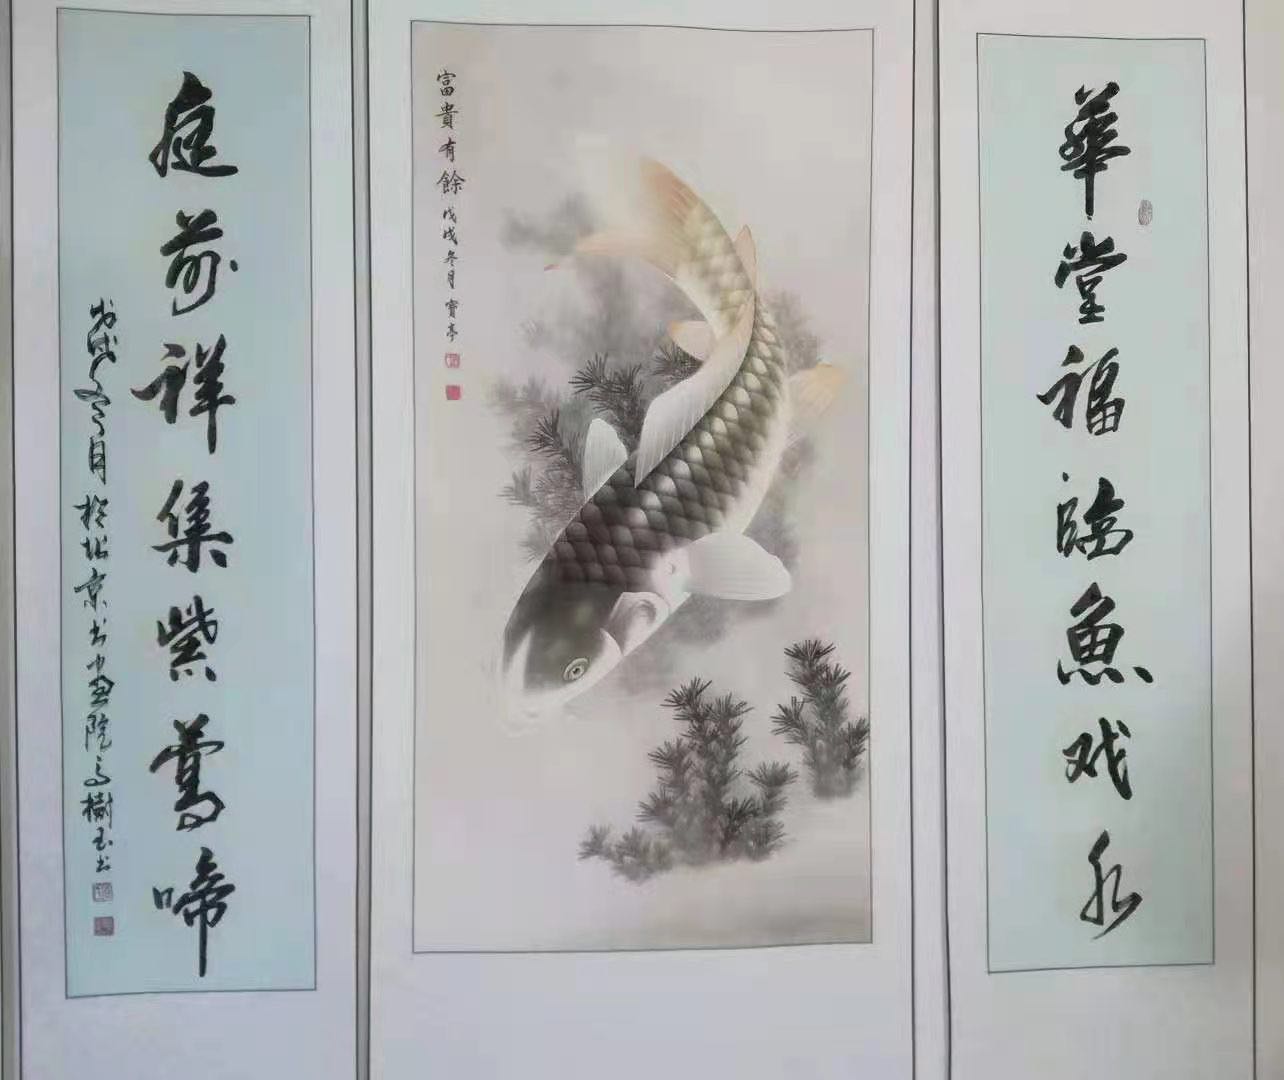 華堂福臨魚戏水
富貴有餘
戊戌冬月 寶亭
庭前祥集紫鶯啼
戊戌冬月於北京书画院高樹玉书